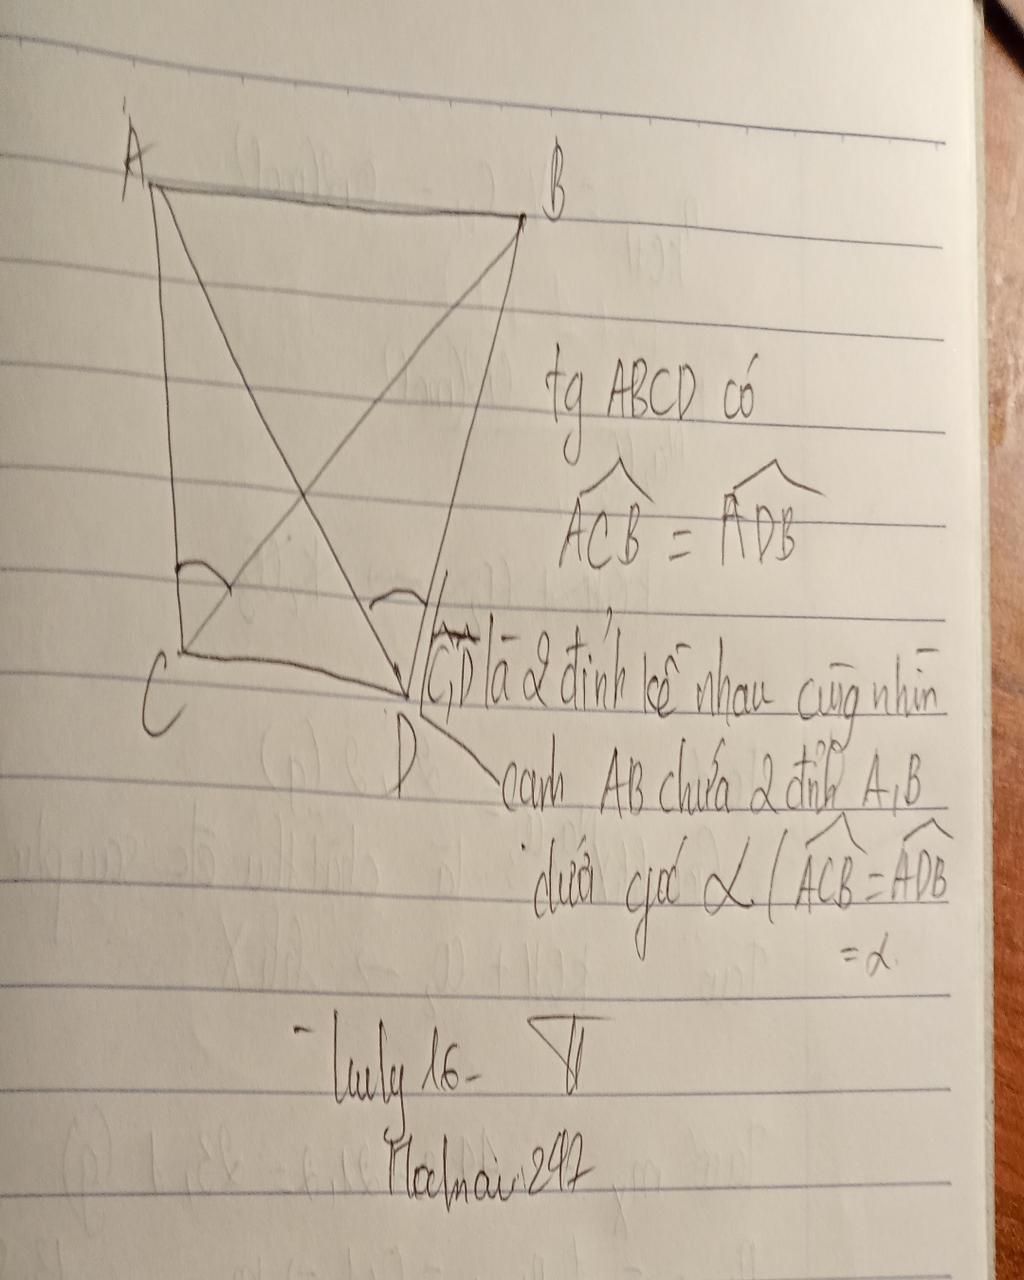 A
B
tg ABCD có
ACB = ADB
C
D
C,D là 2 đỉnh kề nhau cùng nhìn
cạnh AB chứa 2 đỉnh A,B
dưới góc α (ACB = ADB
= α.
- luly 16 -
Hoamai 247